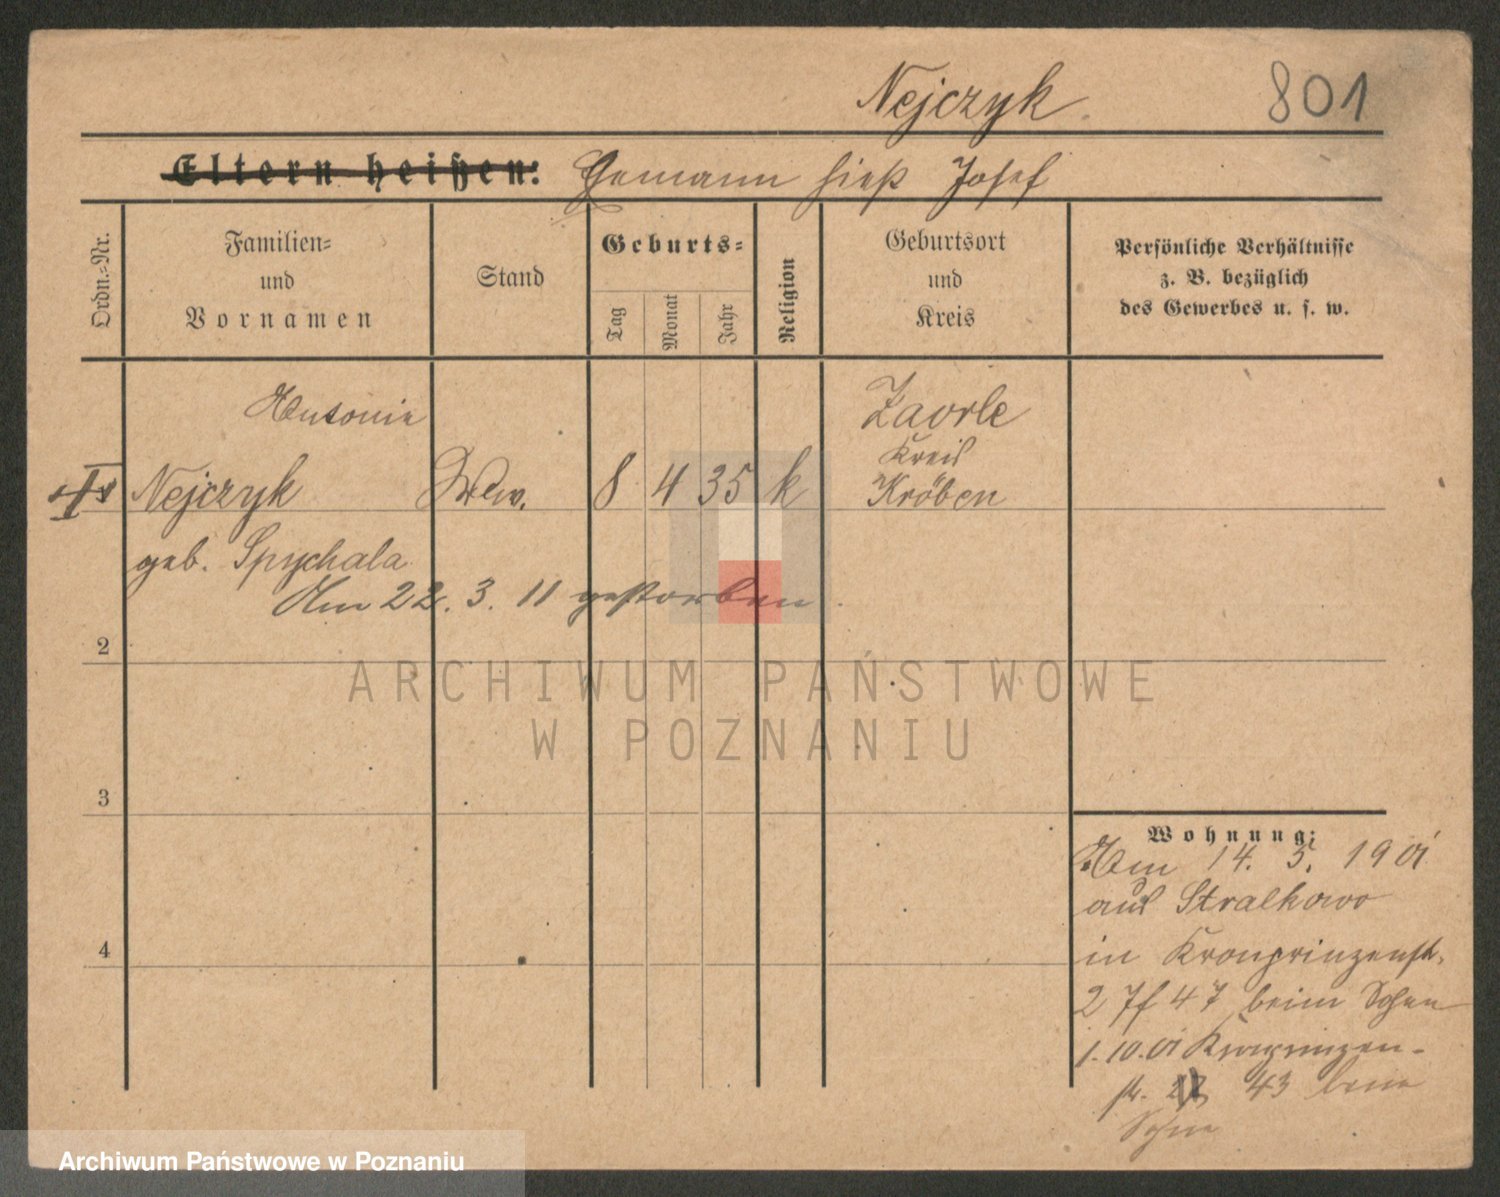 Nejczyk
801
Eltern heißen: Ehemann hieß Josef
Ordn.-Nr.
Familien- und Vornamen
Stand
Geburts-
Tag
Monat
Jahr
Religion
Geburtsort und Kreis
Persönliche Verhältnisse
z. B. bezüglich
des Gewerbes u. s. w.
Antonie
Zaorle
Kreis
Nejczyk Wew. 8 4 35 k Kröben
geb. Spychala
Am 22. 3. 11 gestorben
2
3
4
Wohnung:
Am 14. 5. 1901
aus Stralkowo
in Kronprinzenstr.
47 beim Sohn
1.10.01 Kronprinzen-
str. 43 beim
Sohne
ARCHIWUM PAŃSTWOWE
W POZNANIU
Archiwum Państwowe w Poznaniu